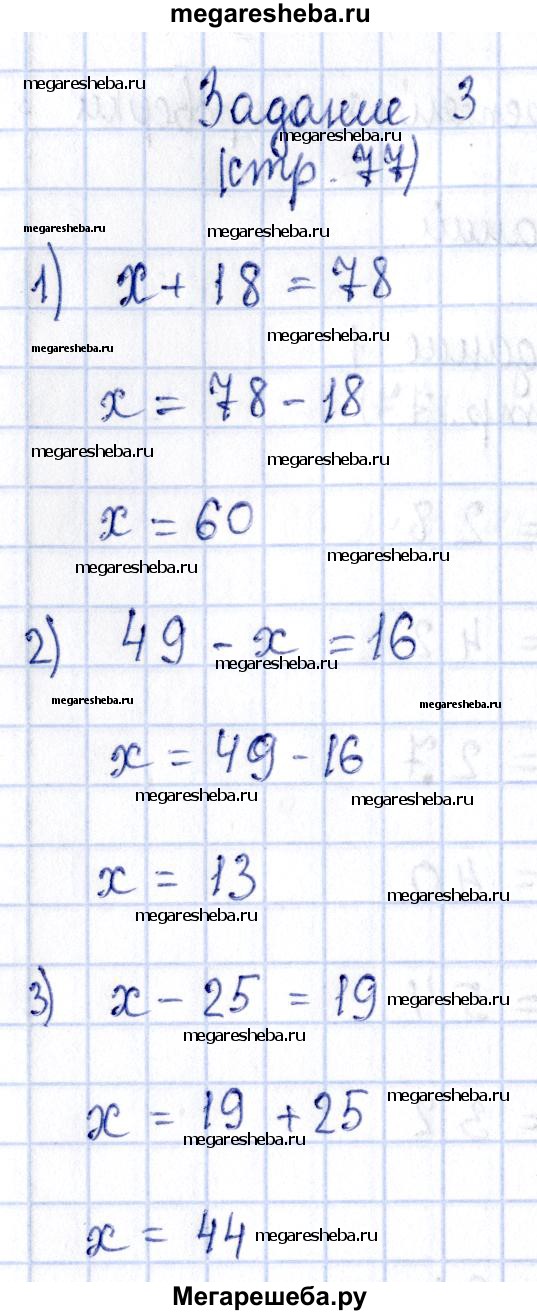 megaresheba.ru
megaresheba.ru
Задание 3
megaresheba.ru
(стр. 77)
megaresheba.ru megaresheba.ru
1) x + 18 = 78
megaresheba.ru
megaresheba.ru
x = 78 - 18
megaresheba.ru megaresheba.ru
x = 60
megaresheba.ru megaresheba.ru
2) 49 - x = 16
megaresheba.ru
megaresheba.ru megaresheba.ru
x = 49 - 16
megaresheba.ru megaresheba.ru
x = 13
megaresheba.ru
megaresheba.ru
3) x - 25 = 19
megaresheba.ru
megaresheba.ru
x = 19 + 25
megaresheba.ru
megaresheba.ru
x = 44
megaresheba.ru
Мегарешеба.ру